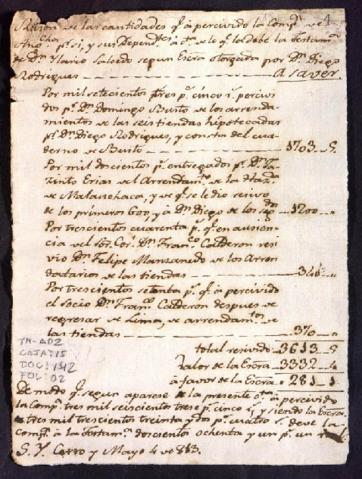 Razon de las cantidades q.e à percivido la Comp.a de
p.r si, y sus Depend.tes à c.ta de lo q.e le debe la testam.a
de D.n Mario Salsedo segun Escra otorgada por D.n Diego
Rodrigues A saver
Por mil setecientos tres p.s cinco r.s percivi
dos p.r D.n Domingo Busto de los arrenda-
mientos de las seis tiendas hipotecadas
p.r D.n Diego Rodrigues, y consta del cua-
derno de Busto 1703.. 5
Por mil docientos p.s entregados p.r D.n
zinto Erias del Arrendam.to de la Hazda
de Matasechaca, y de q.e se le dio recivo
de los primeros 600, y à D.n Diego de los seg.dos 1200..
Por trescientos cuarenta p.s q.e en ausen-
cia del S.or Cor. D.n Fran.co Calderon reci-
vio D.n Felipe Manzanedo de los Arren
datarios de las tiendas 340
Por trescientos setenta p.s q.e à percivido
el Socio D.n Fran.co Calderon despues de
regresar de Lima, de arrendam.tos de
las tiendas 370
total resivido 3613.. 5
Valor de la Escra 3332.. 4
à favor de la Escra 281.. 1
De modo q.e segun aparese de la presente c.ta à percivido
la Comp.a tres mil seiscientos trese p.s cinco r.s y siendo la Escra
de tres mil trescientos treinta y dos p.s cuatro r.s deve la
Comp.a à la testam.a doscientos ochenta y un p.s un r.l
S. Y. Cerro y Mayo 4 de 813.
TH-AD2
CAJA:15
DOC:142
FOL:02